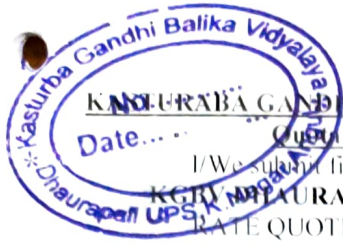 Kasturba Gandhi Balika Vidyalaya
No..............
Date.....
Dhaurapali UPS, K. Nagar
KASTURABA GANDH
I/We submit
KGBV DHAURA
RATE QUOT